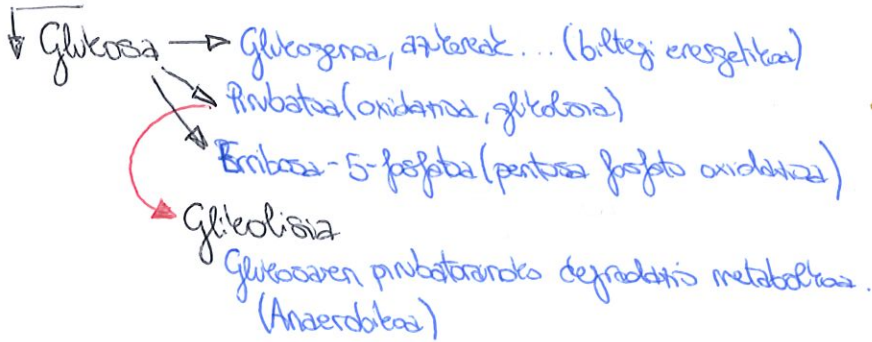 Glukosa → Glukogenoa, azukreak... (biltegi energetikoa)
Pirubatoa (oxidazioa, glikolisia)
Erribosa-5-fosfatoa (pentosa fosfato oxidatzioa)
Glikolisia
Glukosaren pirubatoranoko degradazio metabolikoa.
(Anaerobikoa)